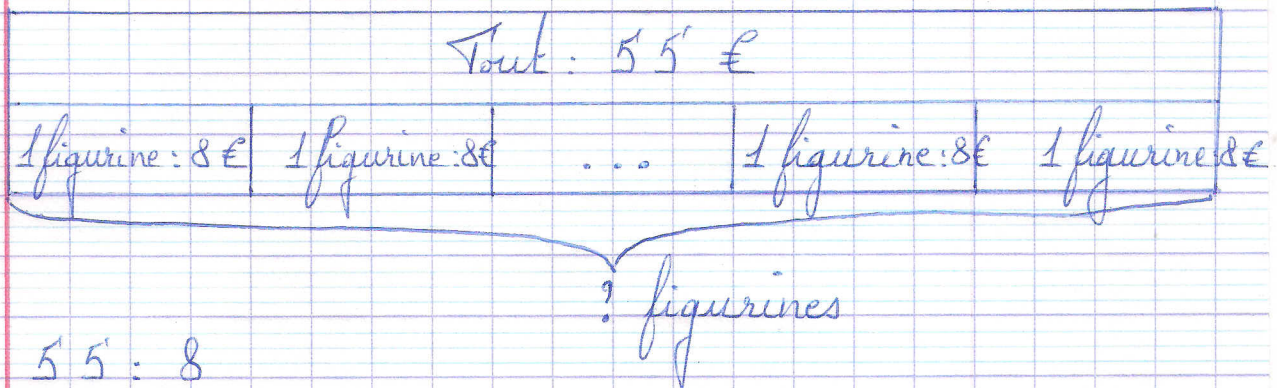 Tout : 55 €
1 figurine : 8 € 1 figurine : 8€ ... 1 figurine : 8€ 1 figurine 8€
? figurines
55 : 8